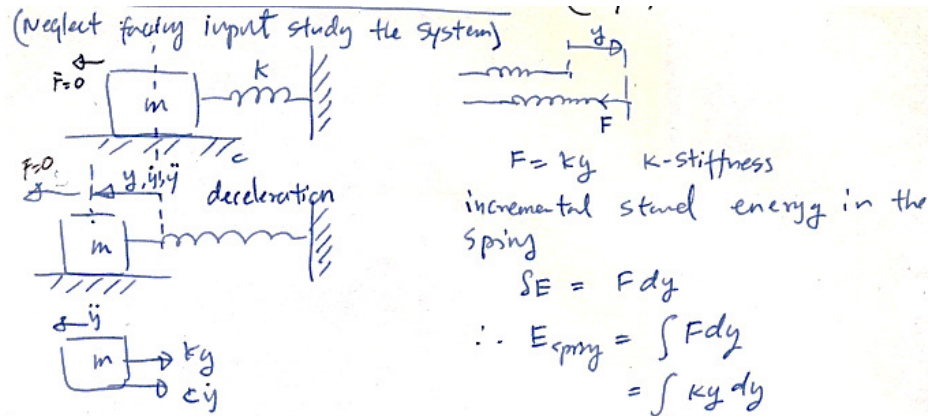 (Neglect facing input study the system)
F=0
m
K
c
F=0
y, ẏ, ÿ
deceleration
m
ÿ
m
ky
cẏ
y
F
F = ky K-stiffness
incremental stored energy in the
spring
SE = Fdy
∴ E spring = ∫ Fdy
= ∫ ky dy